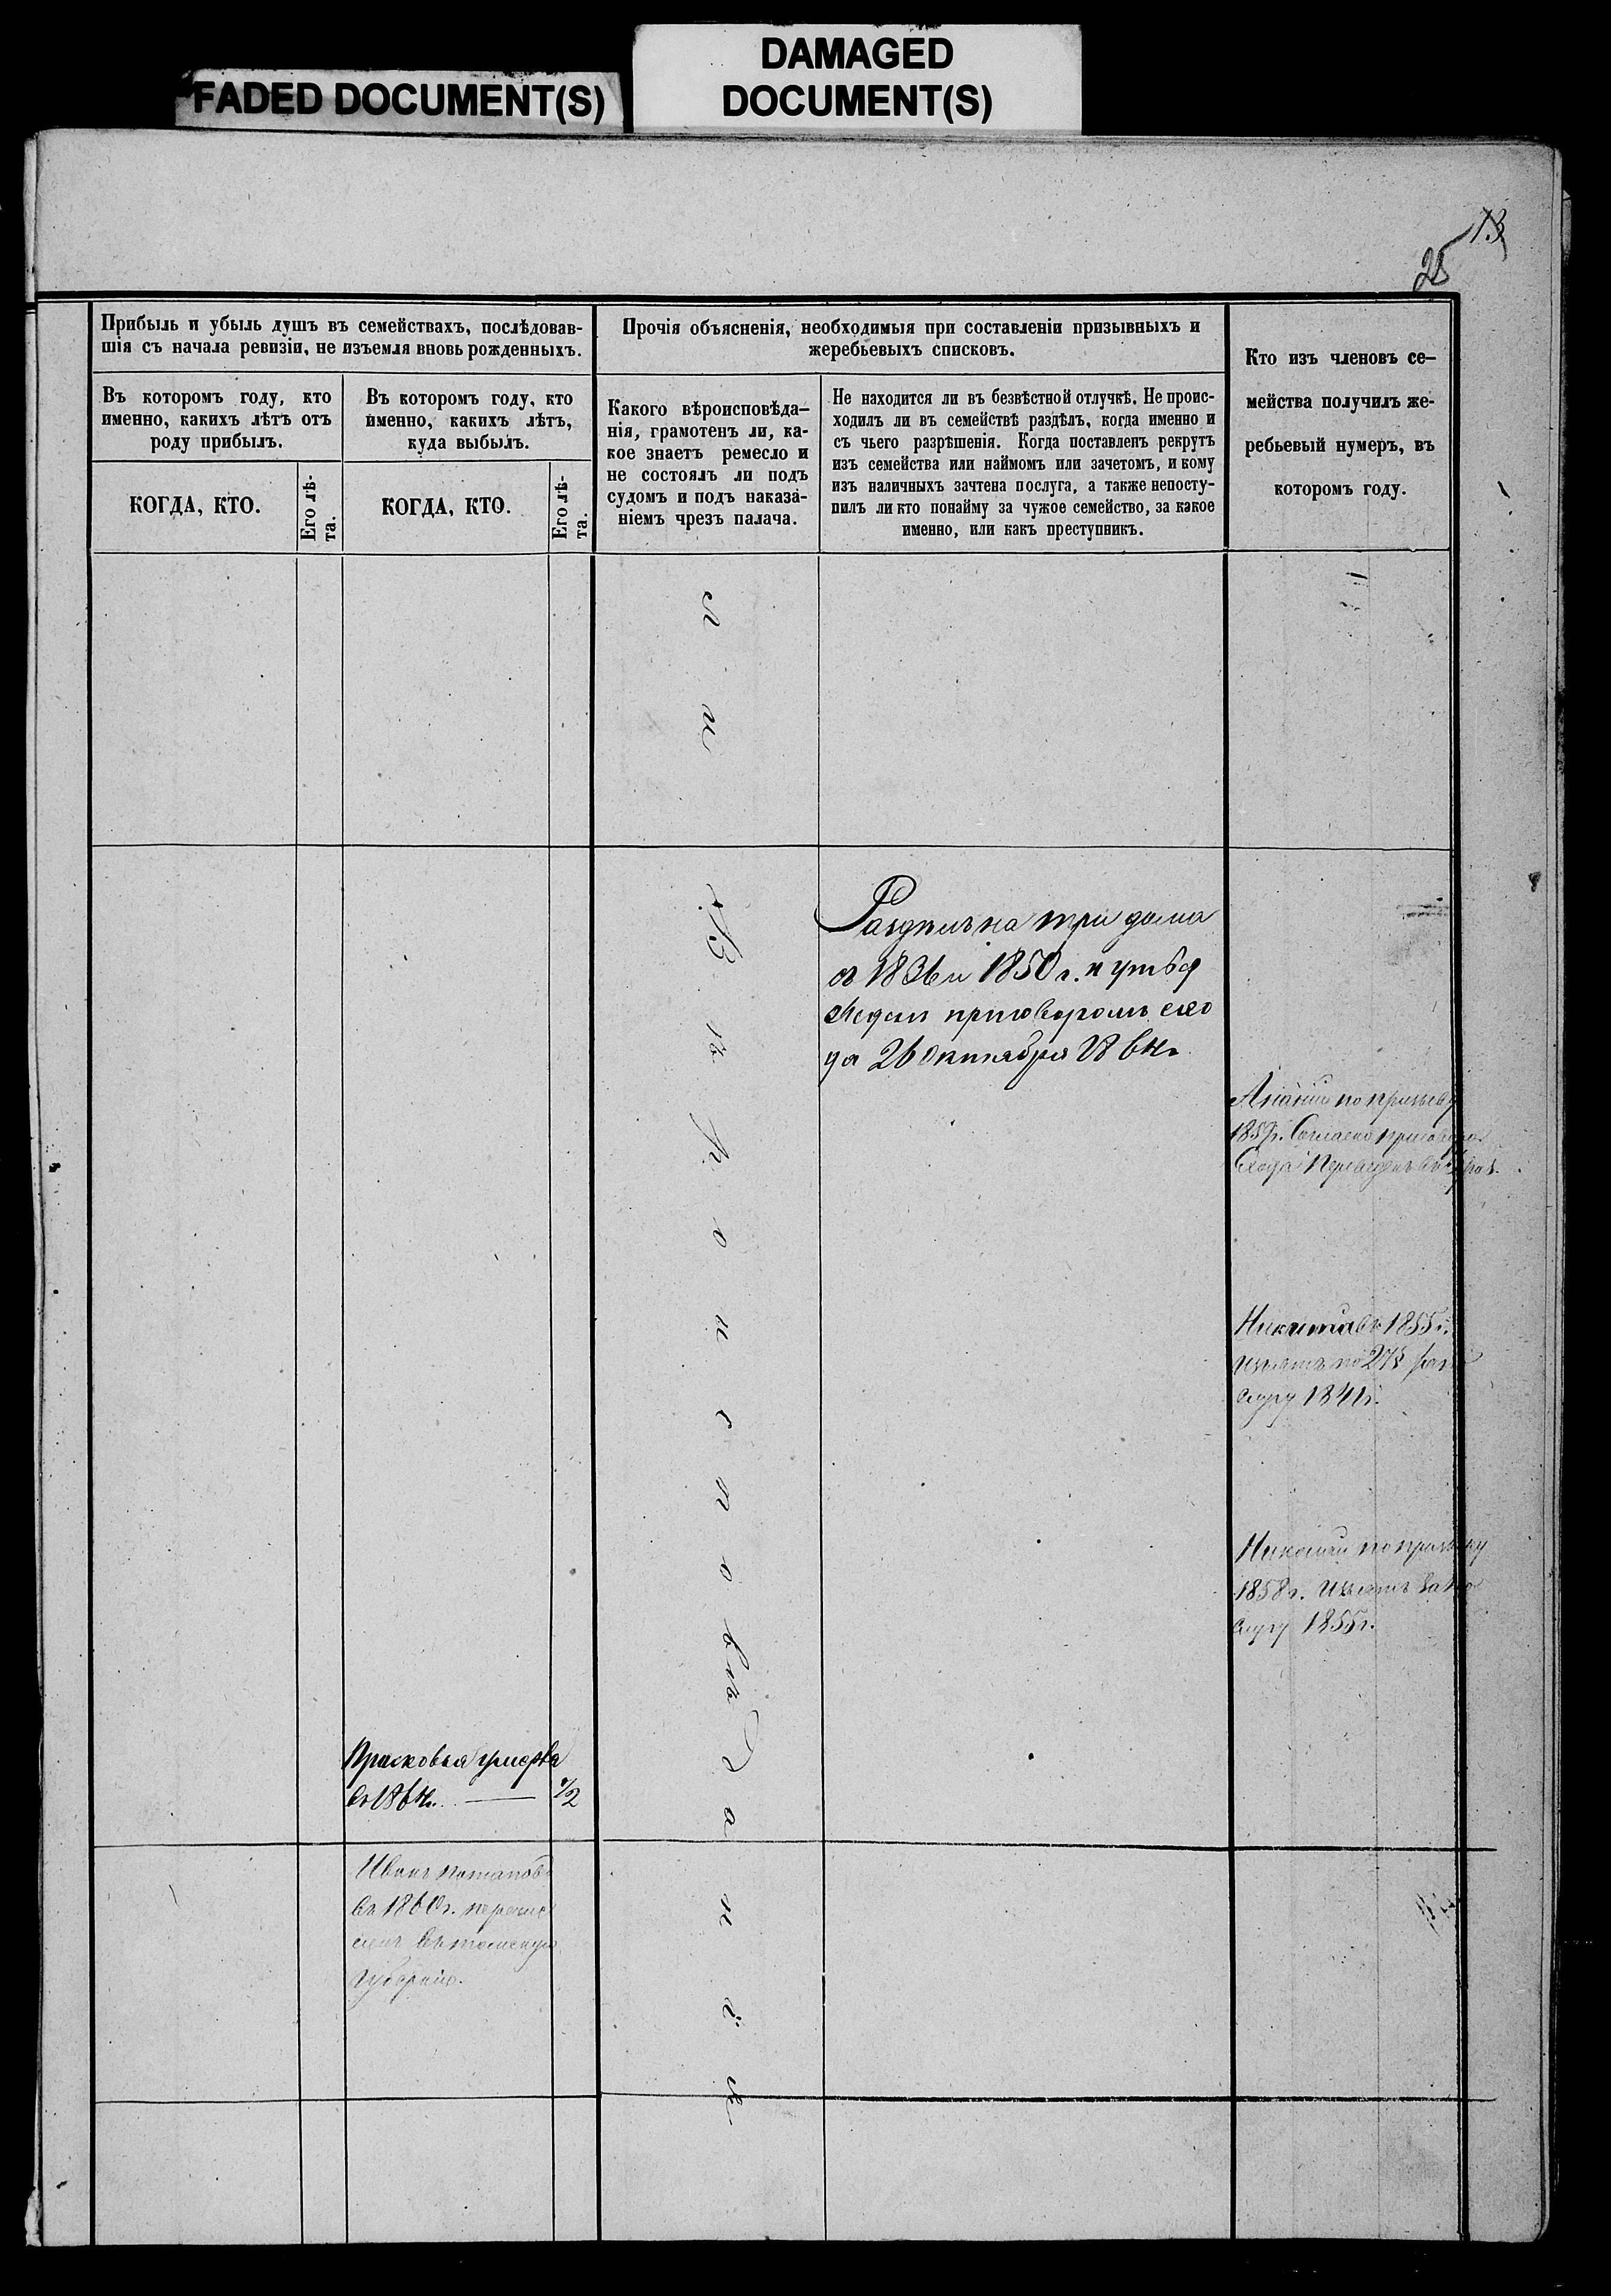 FADED DOCUMENT(S)
DAMAGED
DOCUMENT(S)
13
25
Прибыль и убыль душъ въ семействахъ, послѣдовав-
шія съ начала ревизіи, не изъемля вновь рожденныхъ.
Въ которомъ году, кто
именно, какихъ лѣтъ отъ
роду прибылъ.
КОГДА, КТО.
Его лѣ-
та.
Въ которомъ году, кто
именно, какихъ лѣтъ,
куда выбылъ.
КОГДА, КТО.
Его лѣ-
та.
Прочія объясненія, необходимыя при составленіи призывныхъ и
жеребьевыхъ списковъ.
Какого вѣроисповѣда-
нія, грамотенъ ли, ка-
кое знаетъ ремесло и
не состоялъ ли подъ
судомъ и подъ наказа-
ніемъ чрезъ палача.
Не находится ли въ безвѣстной отлучкѣ. Не проис-
ходилъ ли въ семействѣ раздѣлъ, когда именно и
съ чьего разрѣшенія. Когда поставленъ рекрутъ
изъ семейства или наймомъ или зачетомъ, и кому
изъ наличныхъ зачтена послуга, а также непосту-
пилъ ли кто понайму за чужое семейство, за какое
именно, или какъ преступникъ.
Кто изъ членовъ се-
мейства получилъ же-
ребьевый нумеръ, въ
которомъ году.
Вѣроисповѣданія
Раздѣлъ на три дома
съ 1836 и 1850 г. и утвб
жедъ приговоромъ схо
да 26 Октября 1864 г.
Ананій по призыву
1859г. Согласно приговора
Схода переведенъ въ
Никита въ 1855 г.
изъятъ по
1841г.
Николай по призыву
1858 г. изъятъ за по
слугу 1855г.
Прасковья умерла
въ 1864г. — 1/2
Иванъ Потаповъ
въ 1860г. перечис
ленъ въ томскую
губернію.